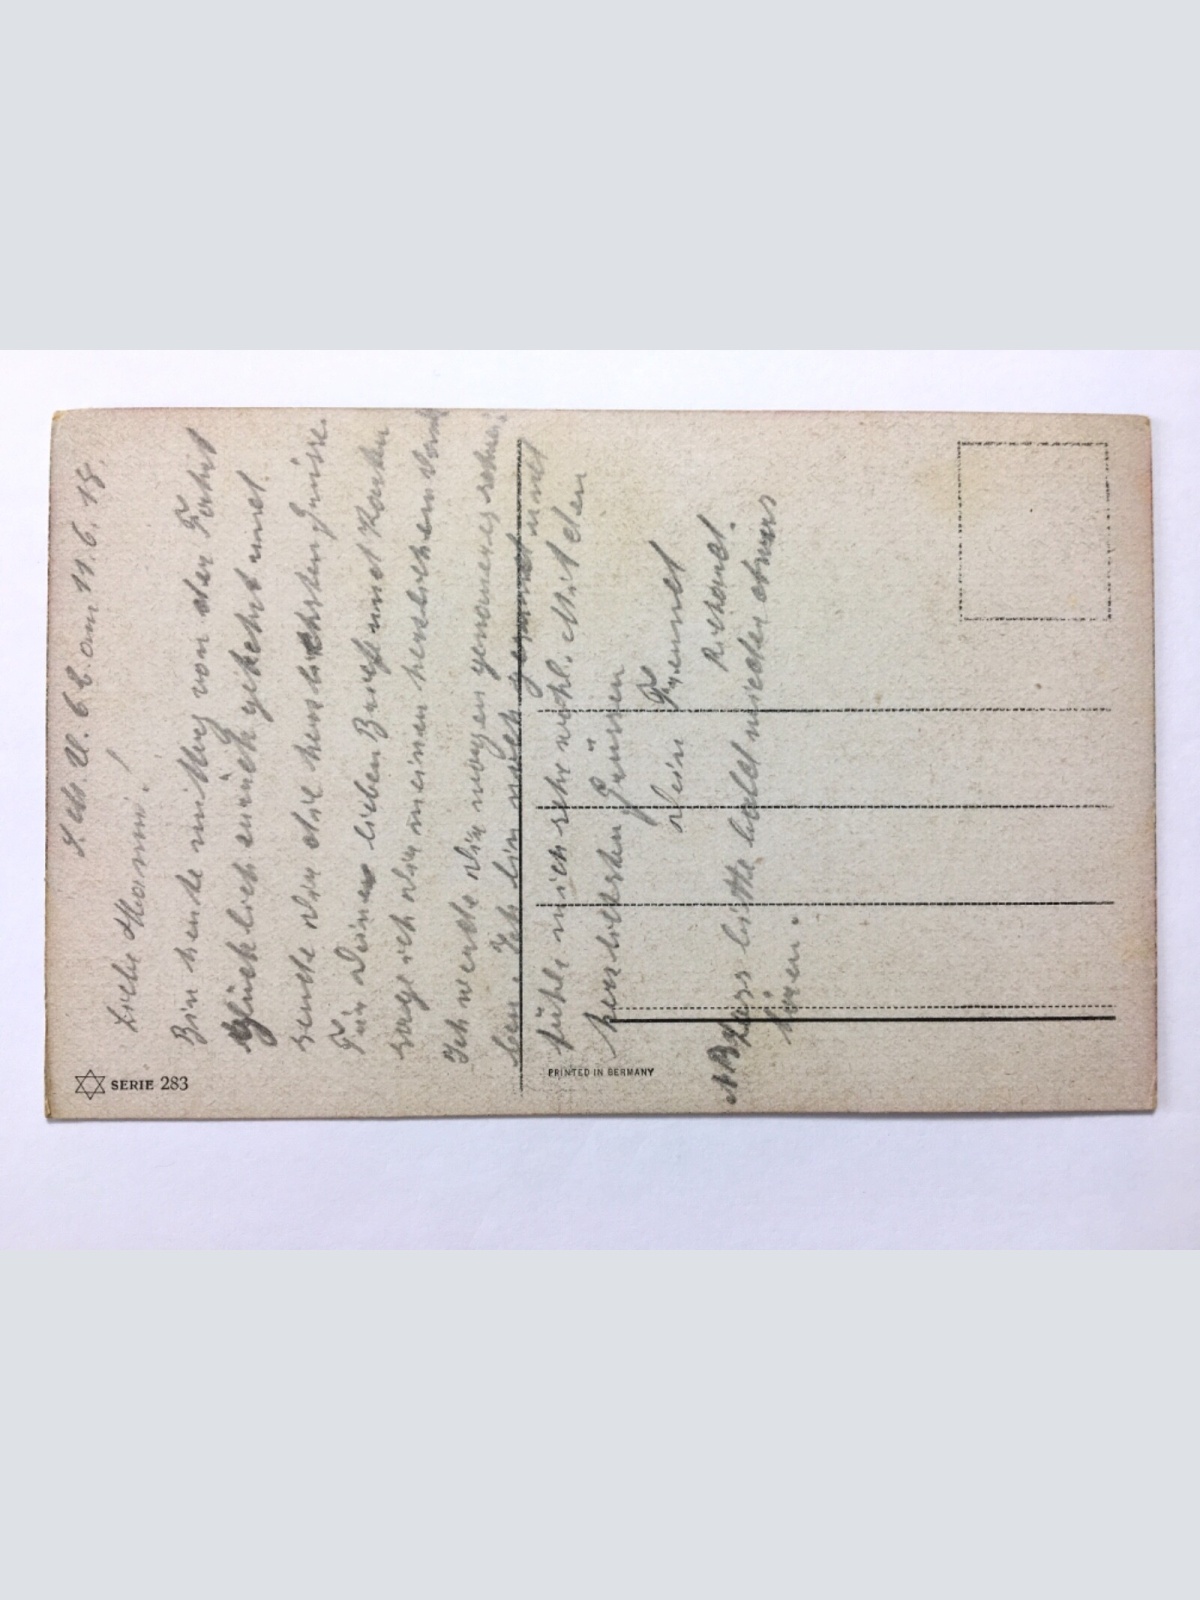 S.M.U. 66. am 11.6.18.
Liebe Hanni!
Bin heute mittag von der Fahrt
glücklich zurück gekehrt und
sende dir die herzlichsten Grüsse.
Für Deinen lieben Brief und Karten
sage ich dir meinen herzlichen Dank
Ich werde dir morgen genaueres schrei-
ben. Ich bin noch gesund und
fühle mich sehr wohl. Mit den
herzlichsten Grüssen
dein Freund
Richard.
NB Lass bitte bald wieder etwas
hören.
SERIE 283
PRINTED IN GERMANY